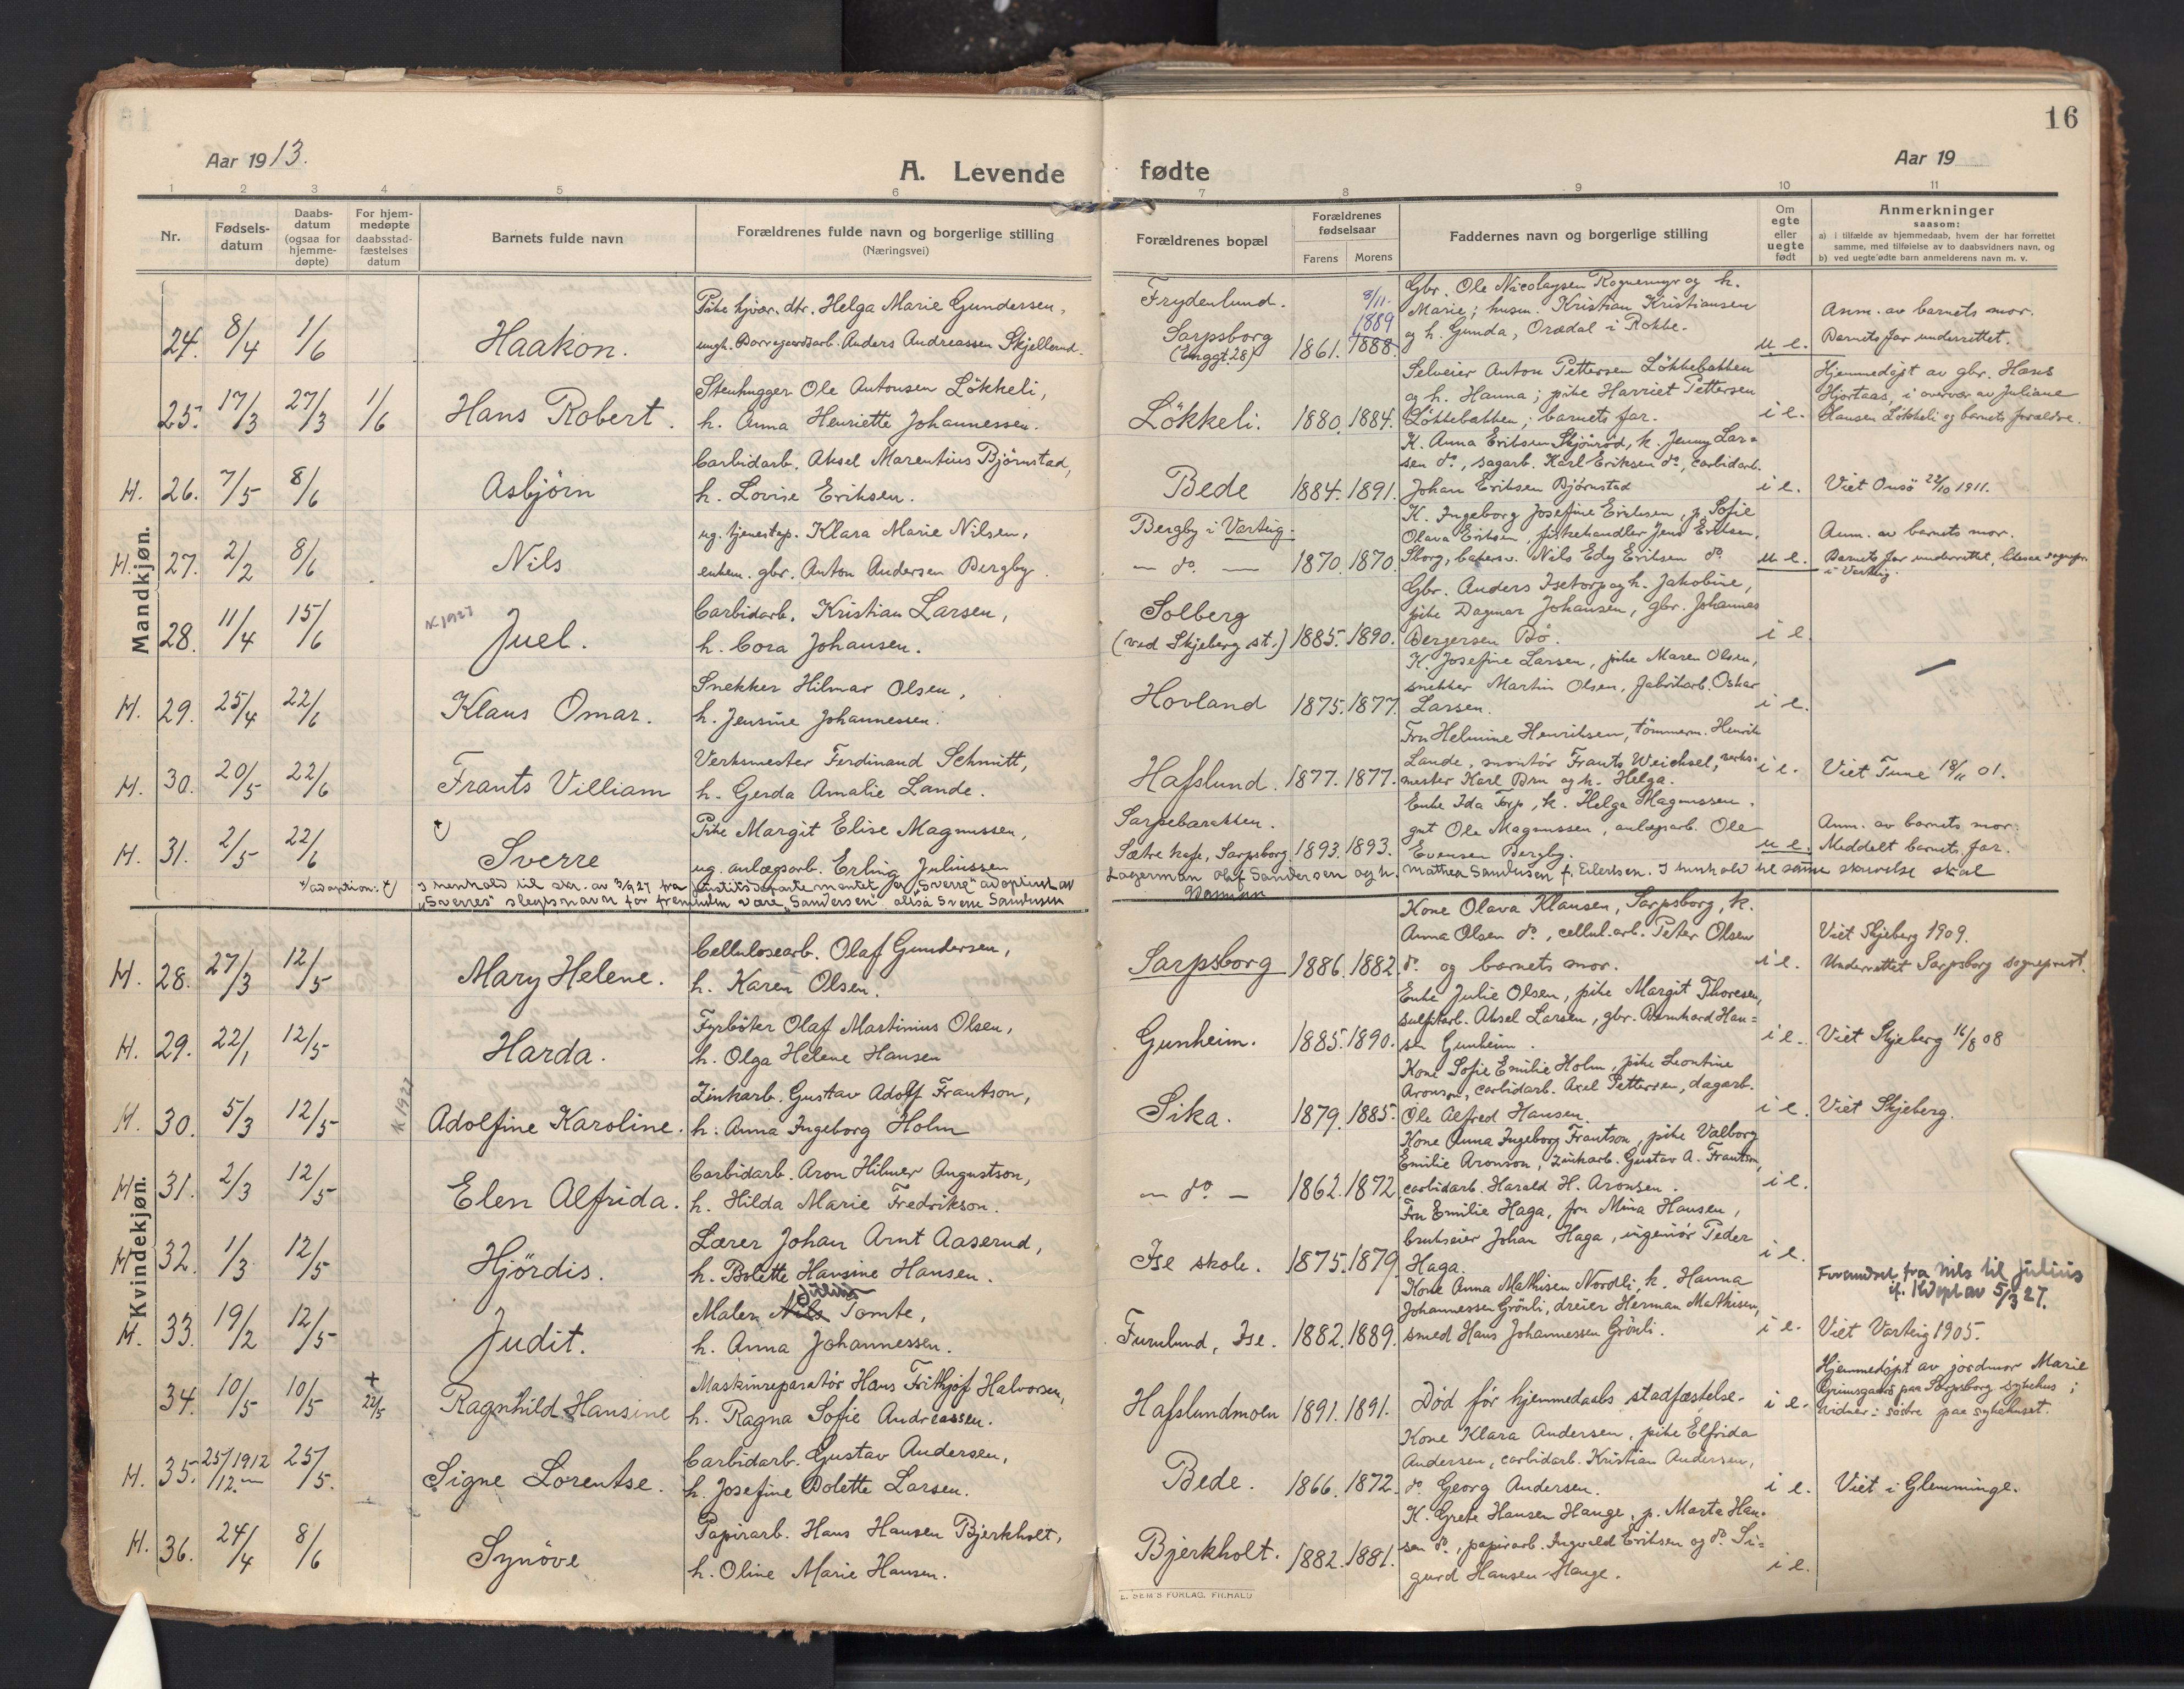 16
Aar 1913.
A. Levende fødte
Aar 19
1 2 3 4 5 6 7 8 9 10 11
Nr.
Fødsels-
datum
Daabs-
datum
(ogsaa for
hjemme-
døpte)
For hjem-
medøpte
daabsstad-
fæstelses
datum
Barnets fulde navn
Forældrenes fulde navn og borgerlige stilling
(Næringsvei)
Forældrenes bopæl
Forældrenes
fødselsaar
Farens Morens
Faddernes navn og borgerlige stilling
Om
egte
eller
uegte
født
Anmerkninger
saasom:
a) i tilfælde av hjemmedaab, hvem der har forrettet
samme, med tilføielse av to daabsvidners navn, og
b) ved uegte fødte barn anmelderens navn m. v.
Mandkjøn.
24. 8/4 1/6 Haakon.
Pike hjvær. dtr. Helga Marie Gundersen,
ungk. Borregaardsarb. Anders Andreassen Skjellerud.
Frydenlund.
Sarpsborg
(Enggt. 28)
1861. 1888.
8/11.
1889
Gbr. Ole Nicolaysen Rognemyr og h.
Marie; husm. Kristian Kristiansen
og h. Gunda, Orødal i Rokke.
u e.
Anm. av barnets mor.
Barnets far underrettet.
25. 17/3 27/3 1/6 Hans Robert.
Stenhugger Ole Antonsen Lökkeli,
h. Anna Henriette Johannessen.
Lökkeli. 1880. 1884.
Selveier Anton Pettersen Lökkebakken
og h. Hanna; pike Harriet Pettersen
Lökkebakken; barnets far.
i e.
Hjemmedøpt av gbr. Hans
Hjortaas, i overvær av Juliane
Hansen Lökkeli og barnets forældre.
H. 26. 7/5 8/6 Asbjörn
Carbidarb. Aksel Marentius Björnstad,
h. Lovise Eriksen.
Bede 1884. 1891.
K. Anna Eriksen Skjönröd, k. Jenny Lar=
sen do., sagarb. Karl Eriksen do., carbidarb.
Johan Eriksen Björnstad
i e.
Viet Onsö 22/10 1911.
H. 27. 2/2 8/6 Nils
ug. tjenestep. Klara Marie Nilsen,
enkem. gbr. Anton Andersen Bergby.
Bergby i Varteig.
— do. — 1870. 1870.
K. Ingeborg Josefine Eriksen, p. Sofie
Olava Eriksen, fiskehandler Jens Eriksen,
Sborg, bakersv. Nils Edy Eriksen do.
u e.
Anm. av barnets mor.
Barnets far underrettet, likesaa sognepr.
i Varteig.
28. 11/4 15/6 K 1927 Juel.
Carbidarb. Kristian Larsen,
h. Cora Johansen.
Solberg
(ved Skjeberg st.) 1885. 1890.
Gbr. Anders Isetorp og h. Jakobine,
pike Dagmar Johansen, gbr. Johannes
Bergersen Bö.
i e.
H. 29. 25/4 22/6 Klaus Omar.
Snekker Hilmar Olsen,
h. Jensine Johannessen.
Hovland 1875. 1877.
K. Josefine Larsen, pike Maren Olsen,
snekker Martin Olsen, fabrikarb. Oskar
Larsen.
i e.
H. 30. 20/5 22/6 Frants Villiam
Verksmester Ferdinand Schmitt,
h. Gerda Amalie Lande.
Hafslund. 1877. 1877.
Fru Helmine Henriksen, tömmerm. Henrik
Lande, montör Frants Weichsel, verks-
mester Karl Bru og h. Helga.
i e.
Viet Tune 18/11 01.
H. 31. 2/5 22/6 Sverre
Pike Margit Elise Magnussen,
ug. anlægsarb. Erling Juliussen
Sarpebarakken.
Sætre kafe, Sarpsborg. 1893. 1893.
Enke Ida Torp, k. Helga Magnussen.
gmt Ole Magnussen, anlægsarb. Ole
Evensen Bergby.
u e.
Anm. av barnets mor.
Meddelt barnets far.
adoption: I henhold til skr. av 3/9 27 fra justitsdepartementet er "Sverre" adoptert av Lagerman Olaf Sandersen og h. Mathea Sandersen f. Eilertsen. I henhold til samme skrivelse skal
"Sverres" slegtsnavn for fremtiden være "Sandersen" altsaa Sverre Sandersen
Kvindekjøn.
H. 28. 27/3 12/5 Mary Helene.
Cellulosearb. Olaf Gundersen,
h. Karen Olsen.
Sarpsborg 1886. 1882.
Kone Olava Klausen, Sarpsborg, k.
Anna Olsen do., cellul.arb. Peter Olsen
do. og barnets mor.
i e.
Viet Skjeberg 1909.
Underrettet Sarpsborg sogneprest.
H. 29. 22/1 12/5 Harda.
Fyrböter Olaf Martinius Olsen,
h. Olga Helene Hansen
Gunheim. 1885. 1890.
Enke Julie Olsen, pike Margit Thoresen,
sulfitarb. Aksel Larsen, gbr. Bernhard Han=
sen Gunheim.
i e.
Viet Skjeberg 16/8 08
H. 30. 5/3 12/5 K 1927 Adolfine Karoline.
Zinkarb. Gustav Adolf Frantson,
h. Anna Ingeborg Holm
Sika. 1879. 1885.
Kone Sofie Emilie Holm, pike Leontine
Aronson, carbidarb. Axel Pettersen, dagarb.
Ole Alfred Hansen.
i e.
Viet Skjeberg.
H. 31. 2/3 12/5 Elen Alfrida.
Carbidarb. Aron Hilmer Augustson,
h. Hilda Marie Fredrikson.
— do. — 1862. 1872.
Kone Anna Ingeborg Frantson, pike Valborg
Emilie Aronson, Zinkarb. Gustav A. Frantson,
carbidarb. Harald H. Aronsen.
i e.
H. 32. 1/3 12/5 Hjördis.
Lærer Johan Arnt Aaserud,
h. Bolette Hansine Hansen.
Ise skole. 1875. 1879.
Fru Emilie Haga, fru Mina Hansen,
brukseier Johan Haga, ingeniör Peder
Haga.
i e.
H. 33. 19/2 12/5 Judit.
Julius
Maler Nils Tomte,
h. Anna Johannessen.
Furulund, Ise. 1882. 1889.
Kone Anna Mathisen Nordli, k. Hanna
Johannessen Grönli, dreier Herman Mathisen,
smed Hans Johannessen Grönli.
i e.
Forandret fra Nils til Julius
if. Kdept av 5/3 27.
Viet Varteig 1905.
34. 10/5 10/5 + 22/5 Ragnhild Hansine
Maskinreparatör Hans Frithjof Halvorsen,
h. Ragna Sofie Andreassen.
Hafslundmoen 1891. 1891.
Död för hjemmedaabs stadfæstelse.
i e.
Hjemmedöpt av jordmor Marie
Grimsgaard paa Sarpsborg sykehus;
vidner: söstre paa sykehuset.
H. 35. 25/12. 1912 25/5. Signe Lorentse.
Carbidarb. Gustav Andersen,
h. Josefine Dolette Larsen.
Bede. 1866. 1872.
Kone Klara Andersen, pike Elfrida
Andersen, carbidarb. Kristian Andersen,
do. Georg Andersen.
i e.
Viet i Glemminge.
H. 36. 24/4 8/6 Synöve
Papirarb. Hans Hansen Bjerkholt,
h. Oline Marie Hansen.
Bjerkholt. 1882. 1881.
K. Grete Hansen Hauge, p. Marta Han-
sen do., papirarb. Ingvald Eriksen og do. Si=
gurd Hansen Hauge.
i e.
E. SEM'S FORLAG. FR.HALD